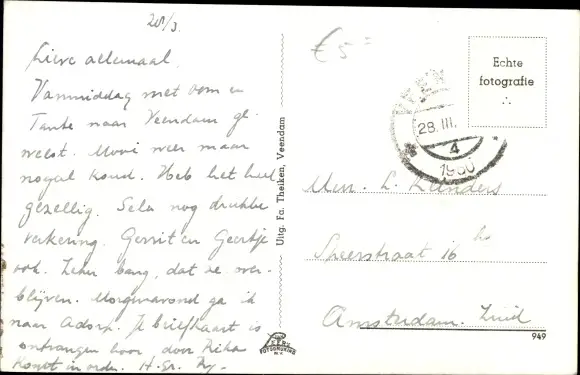 28/3.
Lieve allemaal.
Vanmiddag met oom en
Tante naar Veendam ge-
weest. Mooi weer maar
nogal koud. Heb het heel
gezellig. nog drukke
verkering. Gerrit en Geertje
ook. Zeker bang, dat ze over-
blijven. Morgenavond ga ik
naar Adorp. Je briefkaart is
ontvangen hoor door Rika
Komt in orde. H. Gr.
Uitg. Fa. Theiken, Veendam
€ 5=
Echte
fotografie
VEEN
28.III.
4
1950
L.
16 hs
Amsterdam. Zuid
949